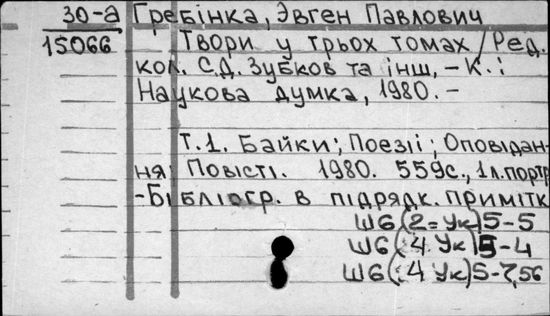 30-а Гребінка, Эвген Павлович
15066 Твори у трьох томах / Ред.
кол. С.Д. Зубков та інш, – К.:
Наукова думка, 1980. –
Т.1. Байки; Поезіі; Оповідан-
ня; Повісті. 1980. 559с., 1л.портр
-Бібліогр. в підрядк. примітк
Ш6(2=Ук)5-5
Ш6(:4Ук)5-4
Ш6(:4Ук)5-7,56